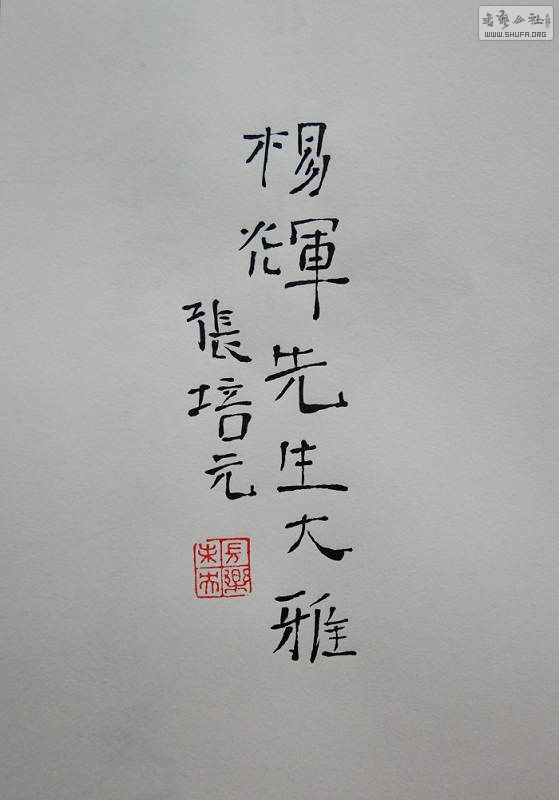 楊輝先生大雅
張培元
書藝公社
WWW.SHUFA.ORG